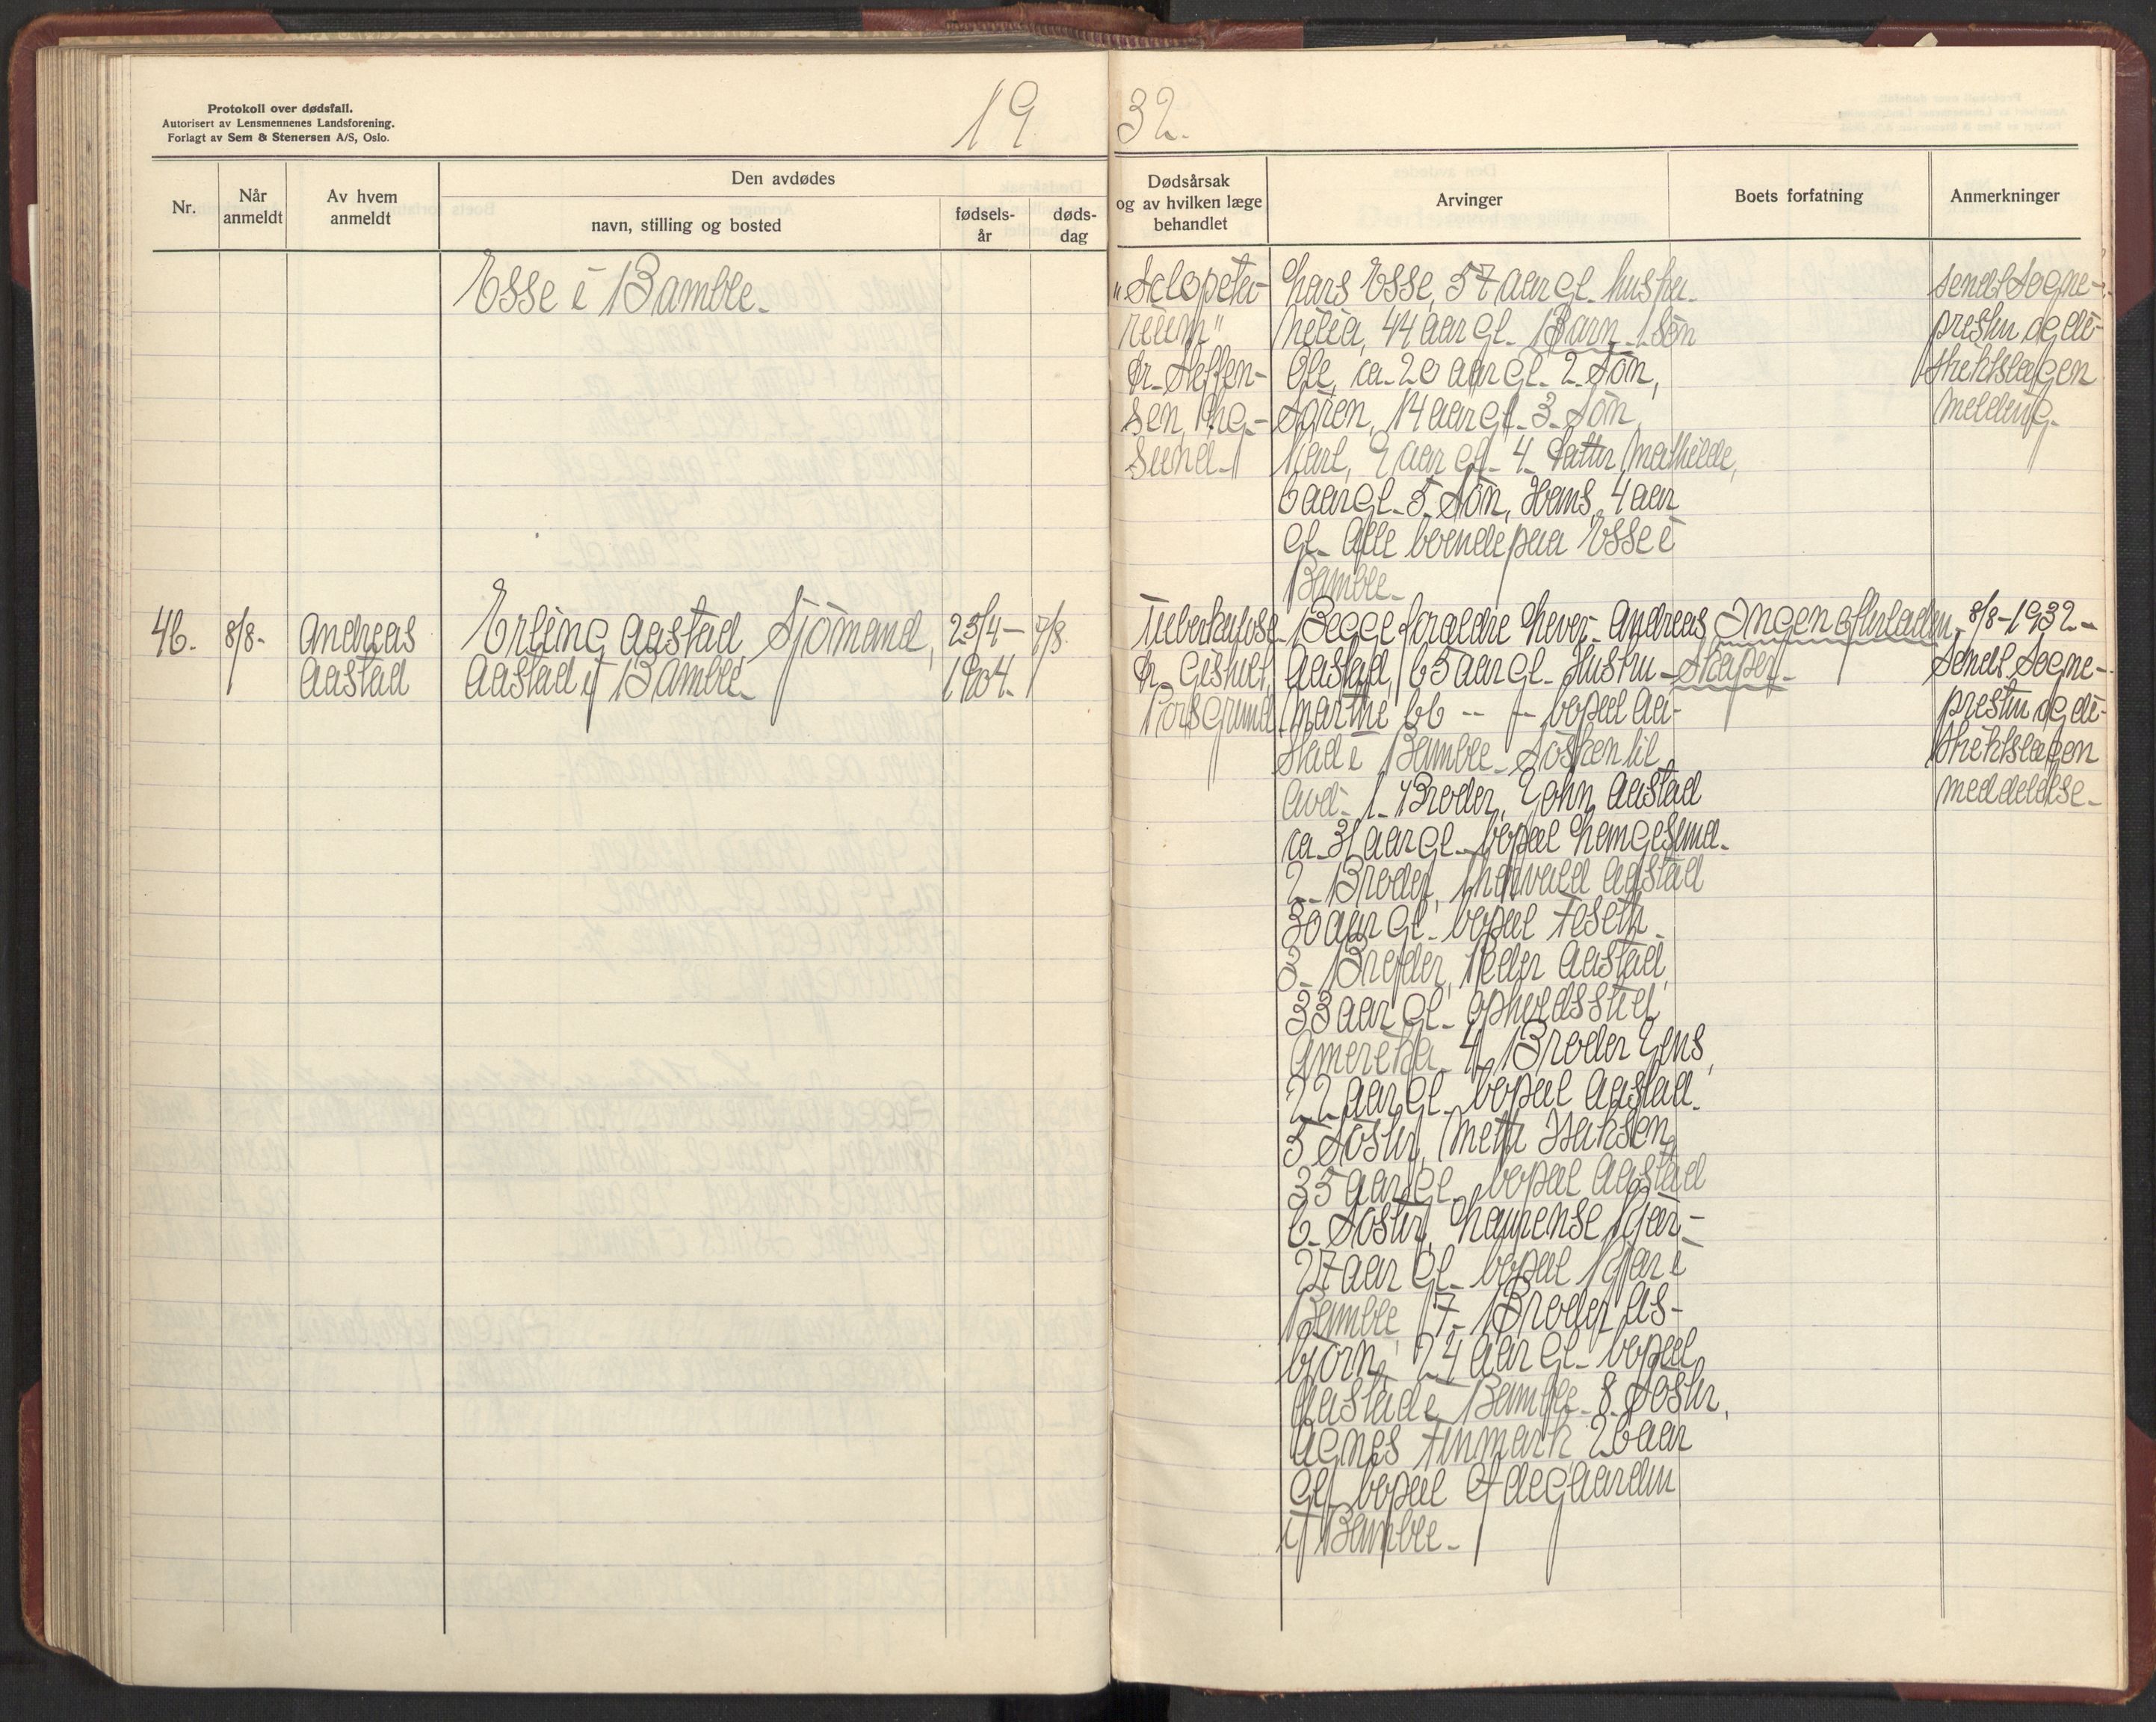 Protokoll over dødsfall.
Autorisert av Lensmennenes Landsforening.
Forlagt av Sem & Stenersen A/S, Oslo.
19
32.
Nr.
Når anmeldt
Av hvem anmeldt
Den avdødes
navn, stilling og bosted
fødsels-år
døds-dag
Dødsårsak
og av hvilken læge
behandlet
Arvinger
Boets forfatning
Anmerkninger
Esse i Bamble.
"Sclopeta-
rium"
Dr. Steffen-
sen, 
sund.
Lars Esse, 57 aar gl. hustru
44 aar gl. Barn 1. Søn
Ole, ca. 20 aar gl. 2. Søn,
Søren, 14 aar gl. 3. Søn
Karl, 9 aar gl. 4. Datter Mathilde,
6 aar gl. 5. Søn, Hans, 4 aar
gl. Alle boende paa Esse i
Bamble.
Sendt Sogne-
presten og di-
striktslægen
melding.
46.
8/8-
Andreas
Aastad
Erling Aastad, Sjømand,
Aastad i Bamble
25/4-
1904.
7/8
Tuberkulose
Dr. 
Porsgrund.
Begge foraldre lever. Andreas
Aastad, 65 aar gl. Hustru
Marthe 66 -- bopæl Aa-
stad i Bamble. Søsken til
avd. 1. Broder, John Aastad
ca. 31 aar gl. bopæl Langesund.
2. Broder, Thorvald Aastad
30 aar gl. bopæl
3. Broder, Peder Aastad,
33 aar gl. opholdssted
Amerika 4. Broder Jens,
22 aar gl. bopæl Aastad.
5 Søster, Isaksen,
35 aar gl. bopæl Aastad
6. Søster, Laurense Kjær-
27 aar gl. bopæl Kjær i
Bamble 7. Broder As-
bjørn, 24 aar gl. bopæl
Aastad i Bamble. 8. Søster,
Agnes Finmark 26 aar
gl. bopæl Ødegaarden
i Bamble.
Ingen efterladen-
skaper.
8/8-1932.-
Sendt Sogne-
presten og di-
striktslægen
meddelelse.